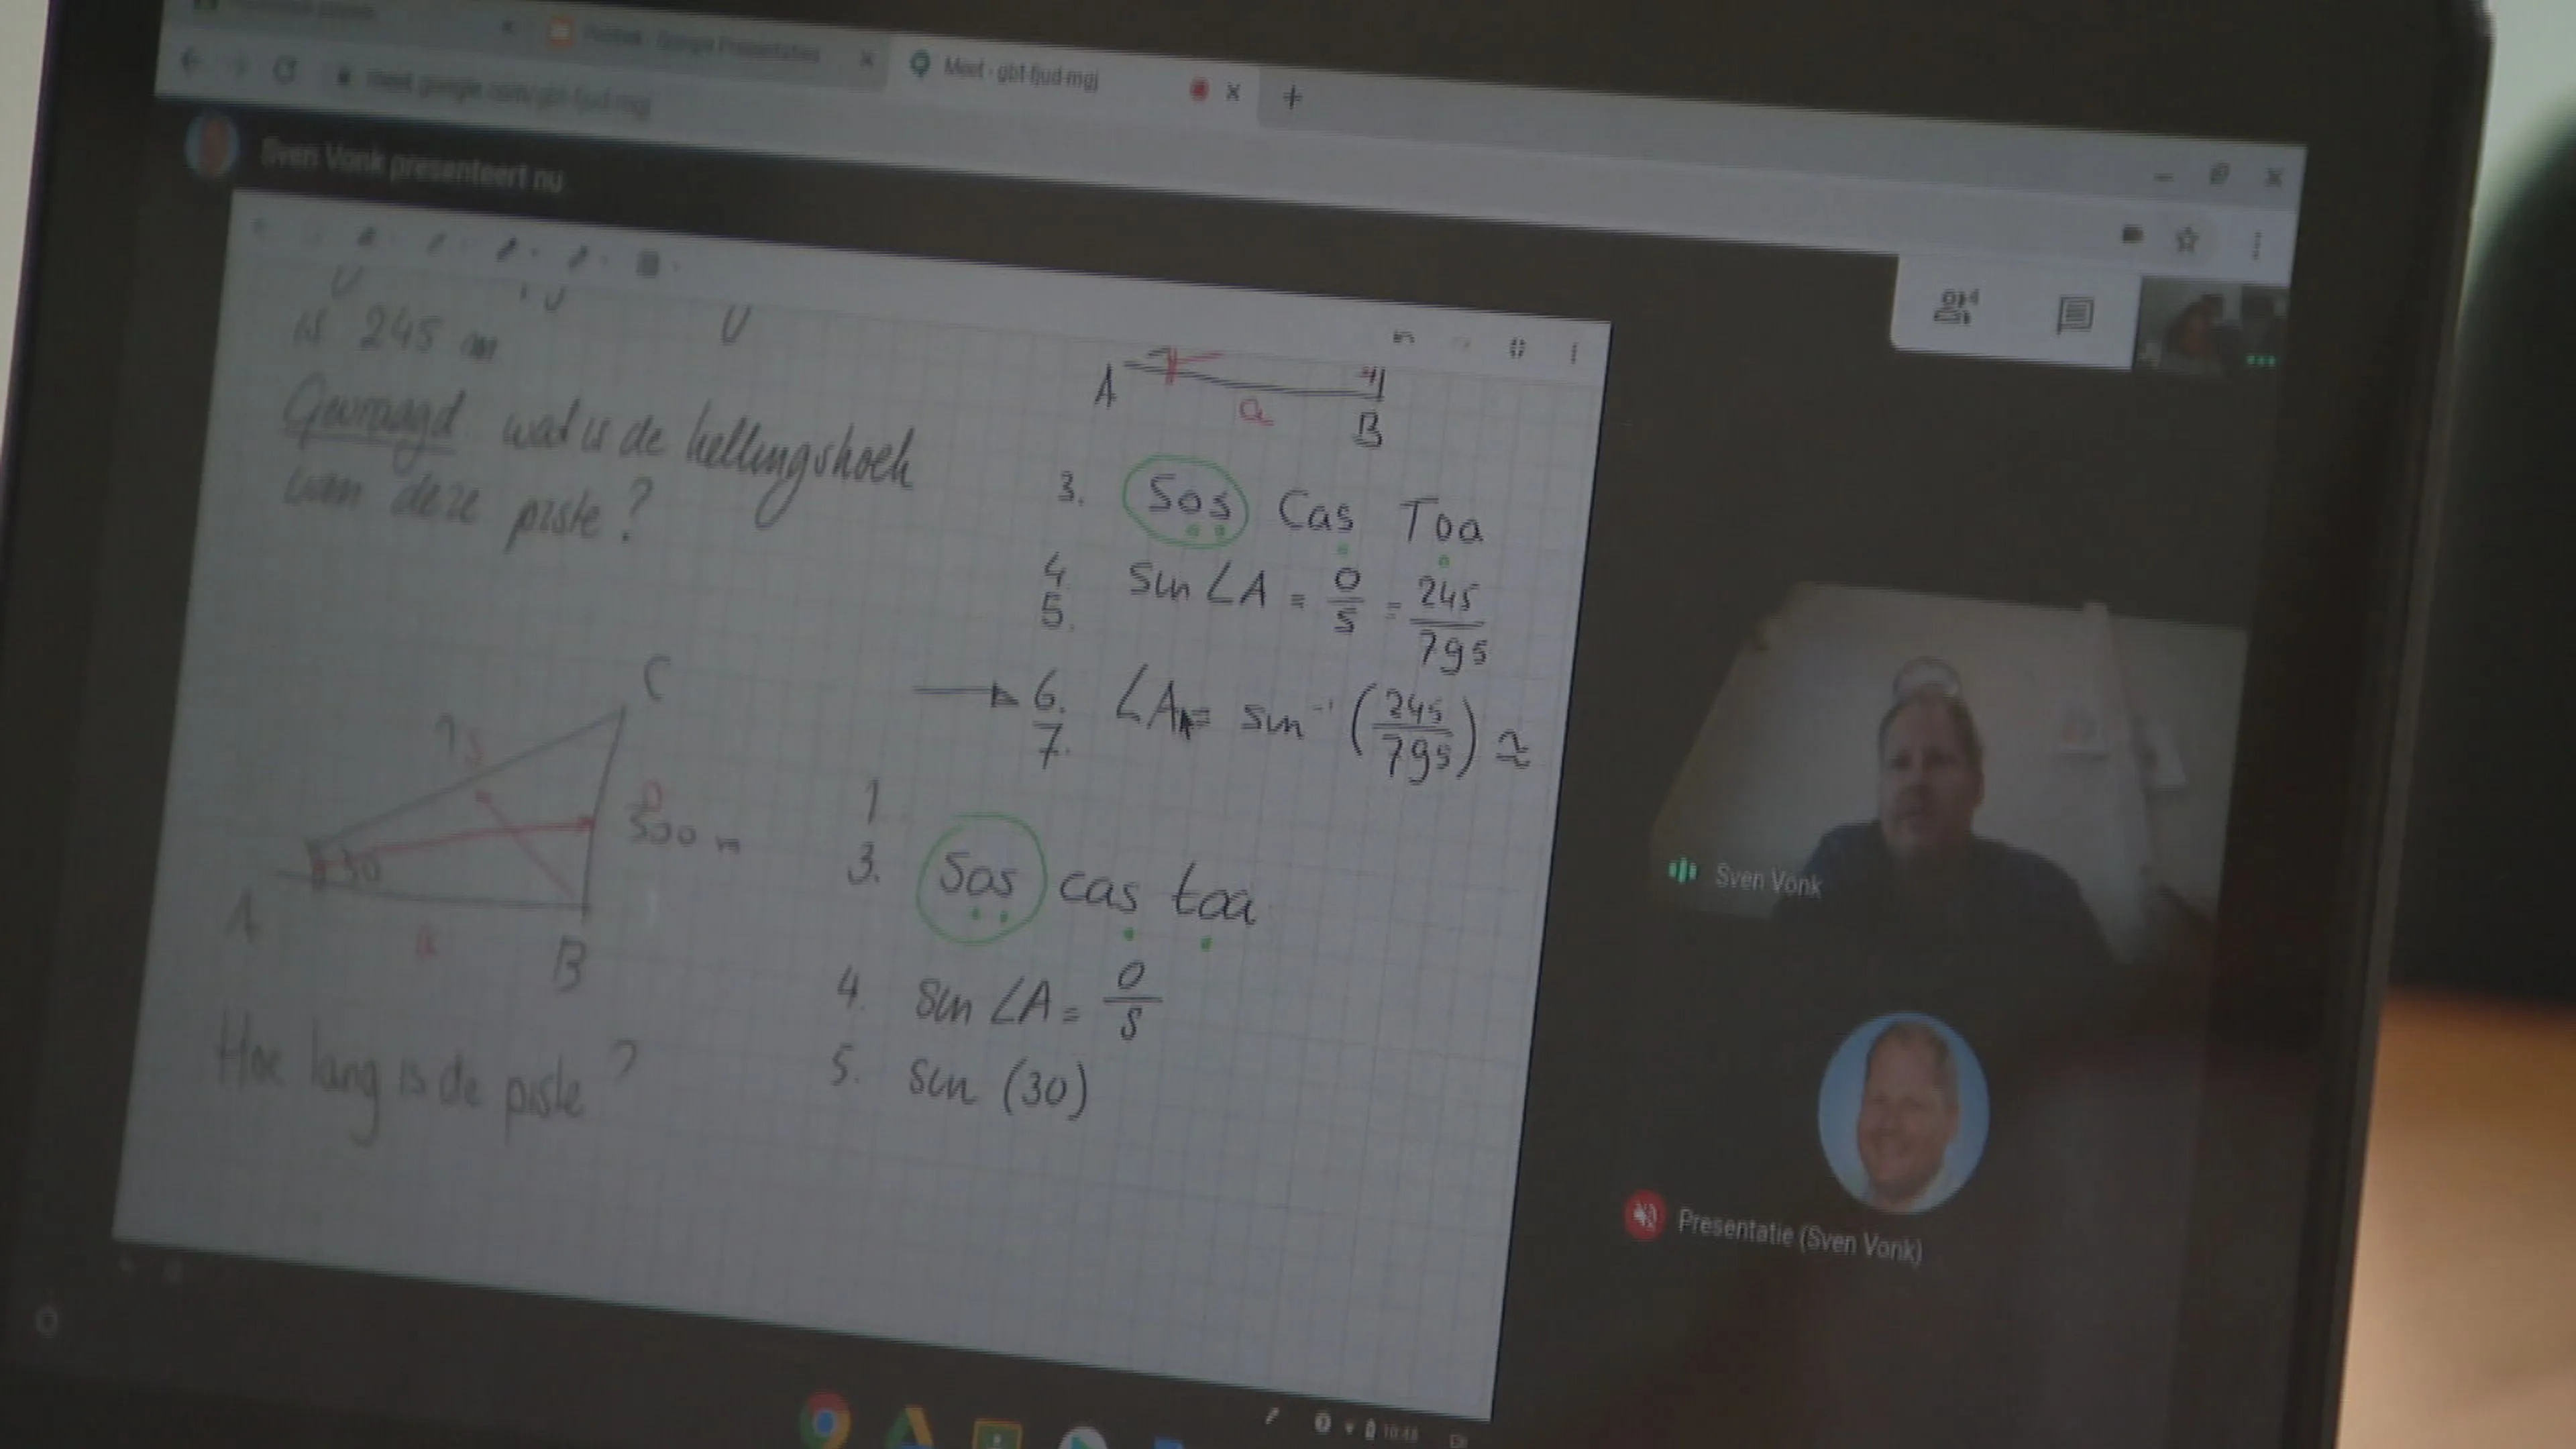 Google Presentaties
Meet - gbt-fjud-mgj
Sven Vonk presenteert nu
is 245 m
Gevraagd wat is de hellingshoek
van deze piste?
A
a
B
3. Sos Cas Toa
4 sin ∠A = o/s = 245/795
5.
6. ∠A = sin⁻¹ (245/795) ≈
7.
C
? s
o
300 m
30
A
a
B
1
3. Sos cas toa
4. sin ∠A = o/s
5. sin (30)
Hoe lang is de piste ?
Sven Vonk
Presentatie (Sven Vonk)